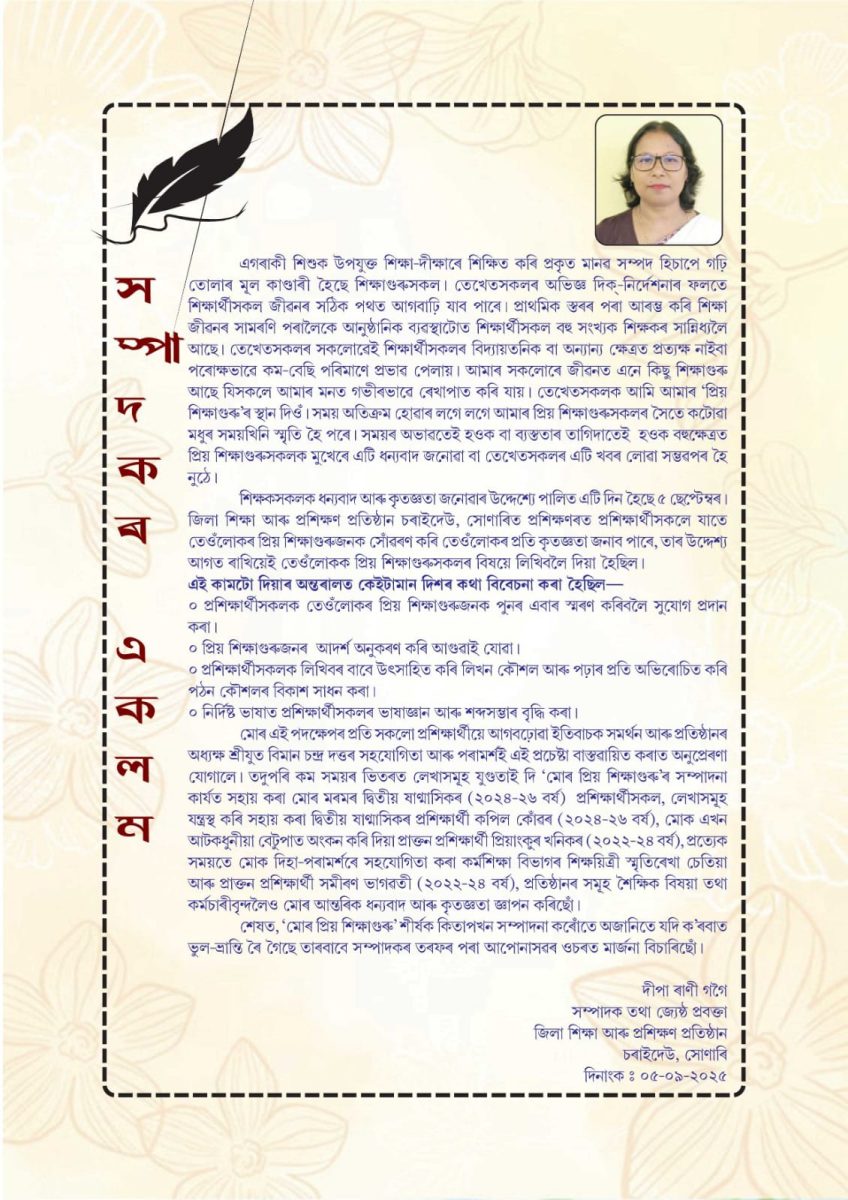 সম্পাদকৰ একলম
এগৰাকী শিশুক উপযুক্ত শিক্ষা-দীক্ষাৰে শিক্ষিত কৰি প্ৰকৃত মানৱ সম্পদ হিচাপে গঢ়ি
তোলাৰ মূল কাণ্ডাৰী হৈছে শিক্ষাগুৰুসকল। তেখেতসকলৰ অভিজ্ঞ দিক্-নিৰ্দেশনাৰ ফলতে
শিক্ষাৰ্থীসকল জীৱনৰ সঠিক পথত আগবাঢ়ি যাব পাৰে। প্ৰাথমিক স্তৰৰ পৰা আৰম্ভ কৰি শিক্ষা
জীৱনৰ সামৰণি পৰালৈকে আনুষ্ঠানিক ব্যৱস্থাটোত শিক্ষাৰ্থীসকল বহু সংখ্যক শিক্ষকৰ সান্নিধ্যলৈ
আহে। তেখেতসকলৰ সকলোৱেই শিক্ষাৰ্থীসকলৰ বিদ্যায়তনিক বা অন্যান্য ক্ষেত্ৰত প্ৰত্যক্ষ নাইবা
পৰোক্ষভাৱে কম-বেছি পৰিমাণে প্ৰভাৱ পেলায়। আমাৰ সকলোৰে জীৱনত এনে কিছু শিক্ষাগুৰু
আছে যিসকলে আমাৰ মনত গভীৰভাৱে ৰেখাপাত কৰি যায়। তেখেতসকলক আমি আমাৰ ‘প্ৰিয়
শিক্ষাগুৰু’ৰ স্থান দিওঁ। সময় অতিক্ৰম হোৱাৰ লগে লগে আমাৰ প্ৰিয় শিক্ষাগুৰুসকলৰ সৈতে কটোৱা
মধুৰ সময়খিনি স্মৃতি হৈ পৰে। সময়ৰ অভাৱতেই হওক বা ব্যস্ততাৰ তাগিদাতেই হওক বহুক্ষেত্ৰত
প্ৰিয় শিক্ষাগুৰুসকলক মুখেৰে এটি ধন্যবাদ জনোৱা বা তেখেতসকলৰ এটি খবৰ লোৱা সম্ভৱপৰ হৈ
নুঠে।
শিক্ষকসকলক ধন্যবাদ আৰু কৃতজ্ঞতা জনোৱাৰ উদ্দেশ্যে পালিত এটি দিন হৈছে ৫ ছেপ্টেম্বৰ।
জিলা শিক্ষা আৰু প্ৰশিক্ষণ প্ৰতিষ্ঠান চৰাইদেউ, সোণাৰিত প্ৰশিক্ষণৰত প্ৰশিক্ষাৰ্থীসকলে যাতে
তেওঁলোকৰ প্ৰিয় শিক্ষাগুৰুজনক সোঁৱৰণ কৰি তেওঁলোকৰ প্ৰতি কৃতজ্ঞতা জনাব পাৰে, তাৰ উদ্দেশ্য
আগত ৰাখিয়েই তেওঁলোকক প্ৰিয় শিক্ষাগুৰুসকলৰ বিষয়ে লিখিবলৈ দিয়া হৈছিল।
এই কামটো দিয়াৰ অন্তৰালত কেইটামান দিশৰ কথা বিবেচনা কৰা হৈছিল—
০ প্ৰশিক্ষাৰ্থীসকলক তেওঁলোকৰ প্ৰিয় শিক্ষাগুৰুজনক পুনৰ এবাৰ স্মৰণ কৰিবলৈ সুযোগ প্ৰদান
কৰা।
০ প্ৰিয় শিক্ষাগুৰুজনৰ আদৰ্শ অনুকৰণ কৰি আগুৱাই যোৱা।
০ প্ৰশিক্ষাৰ্থীসকলক লিখিবৰ বাবে উৎসাহিত কৰি লিখন কৌশল আৰু পঢ়াৰ প্ৰতি অভিৰোচিত কৰি
পঠন কৌশলৰ বিকাশ সাধন কৰা।
০ নিৰ্দিষ্ট ভাষাত প্ৰশিক্ষাৰ্থীসকলৰ ভাষাজ্ঞান আৰু শব্দসম্ভাৰ বৃদ্ধি কৰা।
মোৰ এই পদক্ষেপৰ প্ৰতি সকলো প্ৰশিক্ষাৰ্থীয়ে আগবঢ়োৱা ইতিবাচক সমৰ্থন আৰু প্ৰতিষ্ঠানৰ
অধ্যক্ষ শ্ৰীযুত বিমান চন্দ্ৰ দত্তৰ সহযোগিতা আৰু পৰামৰ্শই এই প্ৰচেষ্টা বাস্তৱায়িত কৰাত অনুপ্ৰেৰণা
যোগালে। তদুপৰি কম সময়ৰ ভিতৰত লেখাসমূহ যুগুতাই দি ‘মোৰ প্ৰিয় শিক্ষাগুৰু’ৰ সম্পাদনা
কাৰ্যত সহায় কৰা মোৰ মৰমৰ দ্বিতীয় ষাণ্মাসিকৰ (২০২৪-২৬ বৰ্ষ) প্ৰশিক্ষাৰ্থীসকল, লেখাসমূহ
যন্ত্ৰস্থ কৰি সহায় কৰা দ্বিতীয় ষাণ্মাসিকৰ প্ৰশিক্ষাৰ্থী কপিল কোঁৱৰ (২০২৪-২৬ বৰ্ষ), মোক এখন
আটকধুনীয়া বেটুপাত অংকন কৰি দিয়া প্ৰাক্তন প্ৰশিক্ষাৰ্থী প্ৰিয়াংকুৰ খনিকৰ (২০২২-২৪ বৰ্ষ), প্ৰত্যেক
সময়তে মোক দিহা-পৰামৰ্শৰে সহযোগিতা কৰা কৰ্মশিক্ষা বিভাগৰ শিক্ষয়িত্ৰী স্মৃতিৰেখা চেতিয়া
আৰু প্ৰাক্তন প্ৰশিক্ষাৰ্থী সমীৰণ ভাগৱতী (২০২২-২৪ বৰ্ষ), প্ৰতিষ্ঠানৰ সমূহ শৈক্ষিক বিষয়া তথা
কৰ্মচাৰীবৃন্দলৈও মোৰ আন্তৰিক ধন্যবাদ আৰু কৃতজ্ঞতা জ্ঞাপন কৰিছোঁ।
শেষত, ‘মোৰ প্ৰিয় শিক্ষাগুৰু’ শীৰ্ষক কিতাপখন সম্পাদনা কৰোঁতে অজানিতে যদি ক’ৰবাত
ভুল-ভ্ৰান্তি ৰৈ গৈছে তাৰবাবে সম্পাদকৰ তৰফৰ পৰা আপোনাসৱৰ ওচৰত মাৰ্জনা বিচাৰিছোঁ।
দীপা ৰাণী গগৈ
সম্পাদক তথা জ্যেষ্ঠ প্ৰবক্তা
জিলা শিক্ষা আৰু প্ৰশিক্ষণ প্ৰতিষ্ঠান
চৰাইদেউ, সোণাৰি
দিনাংক ঃ ০৫-০৯-২০২৫